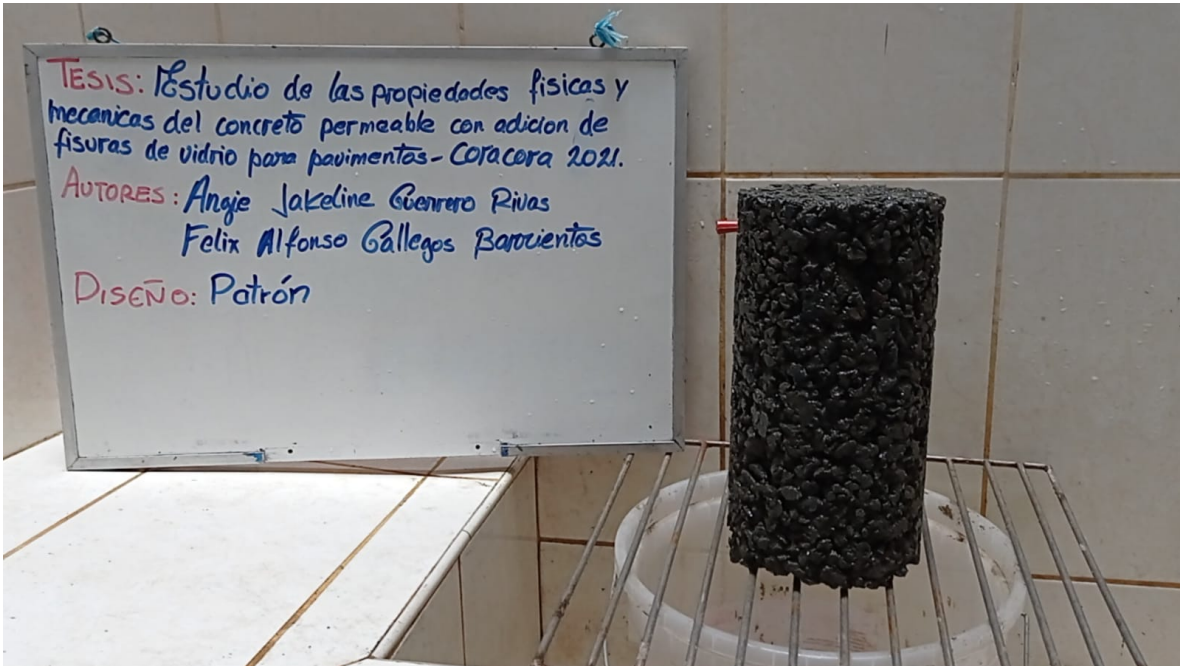 TESIS: Estudio de las propiedades fisicas y
mecanicas del concreto permeable con adicion de
fisuras de vidrio para pavimentos - Coracora 2021.
AUTORES: Angie Jakeline Guerrero Rivas
Felix Alfonso Gallegos Barrientos
DISEÑO: Patrón